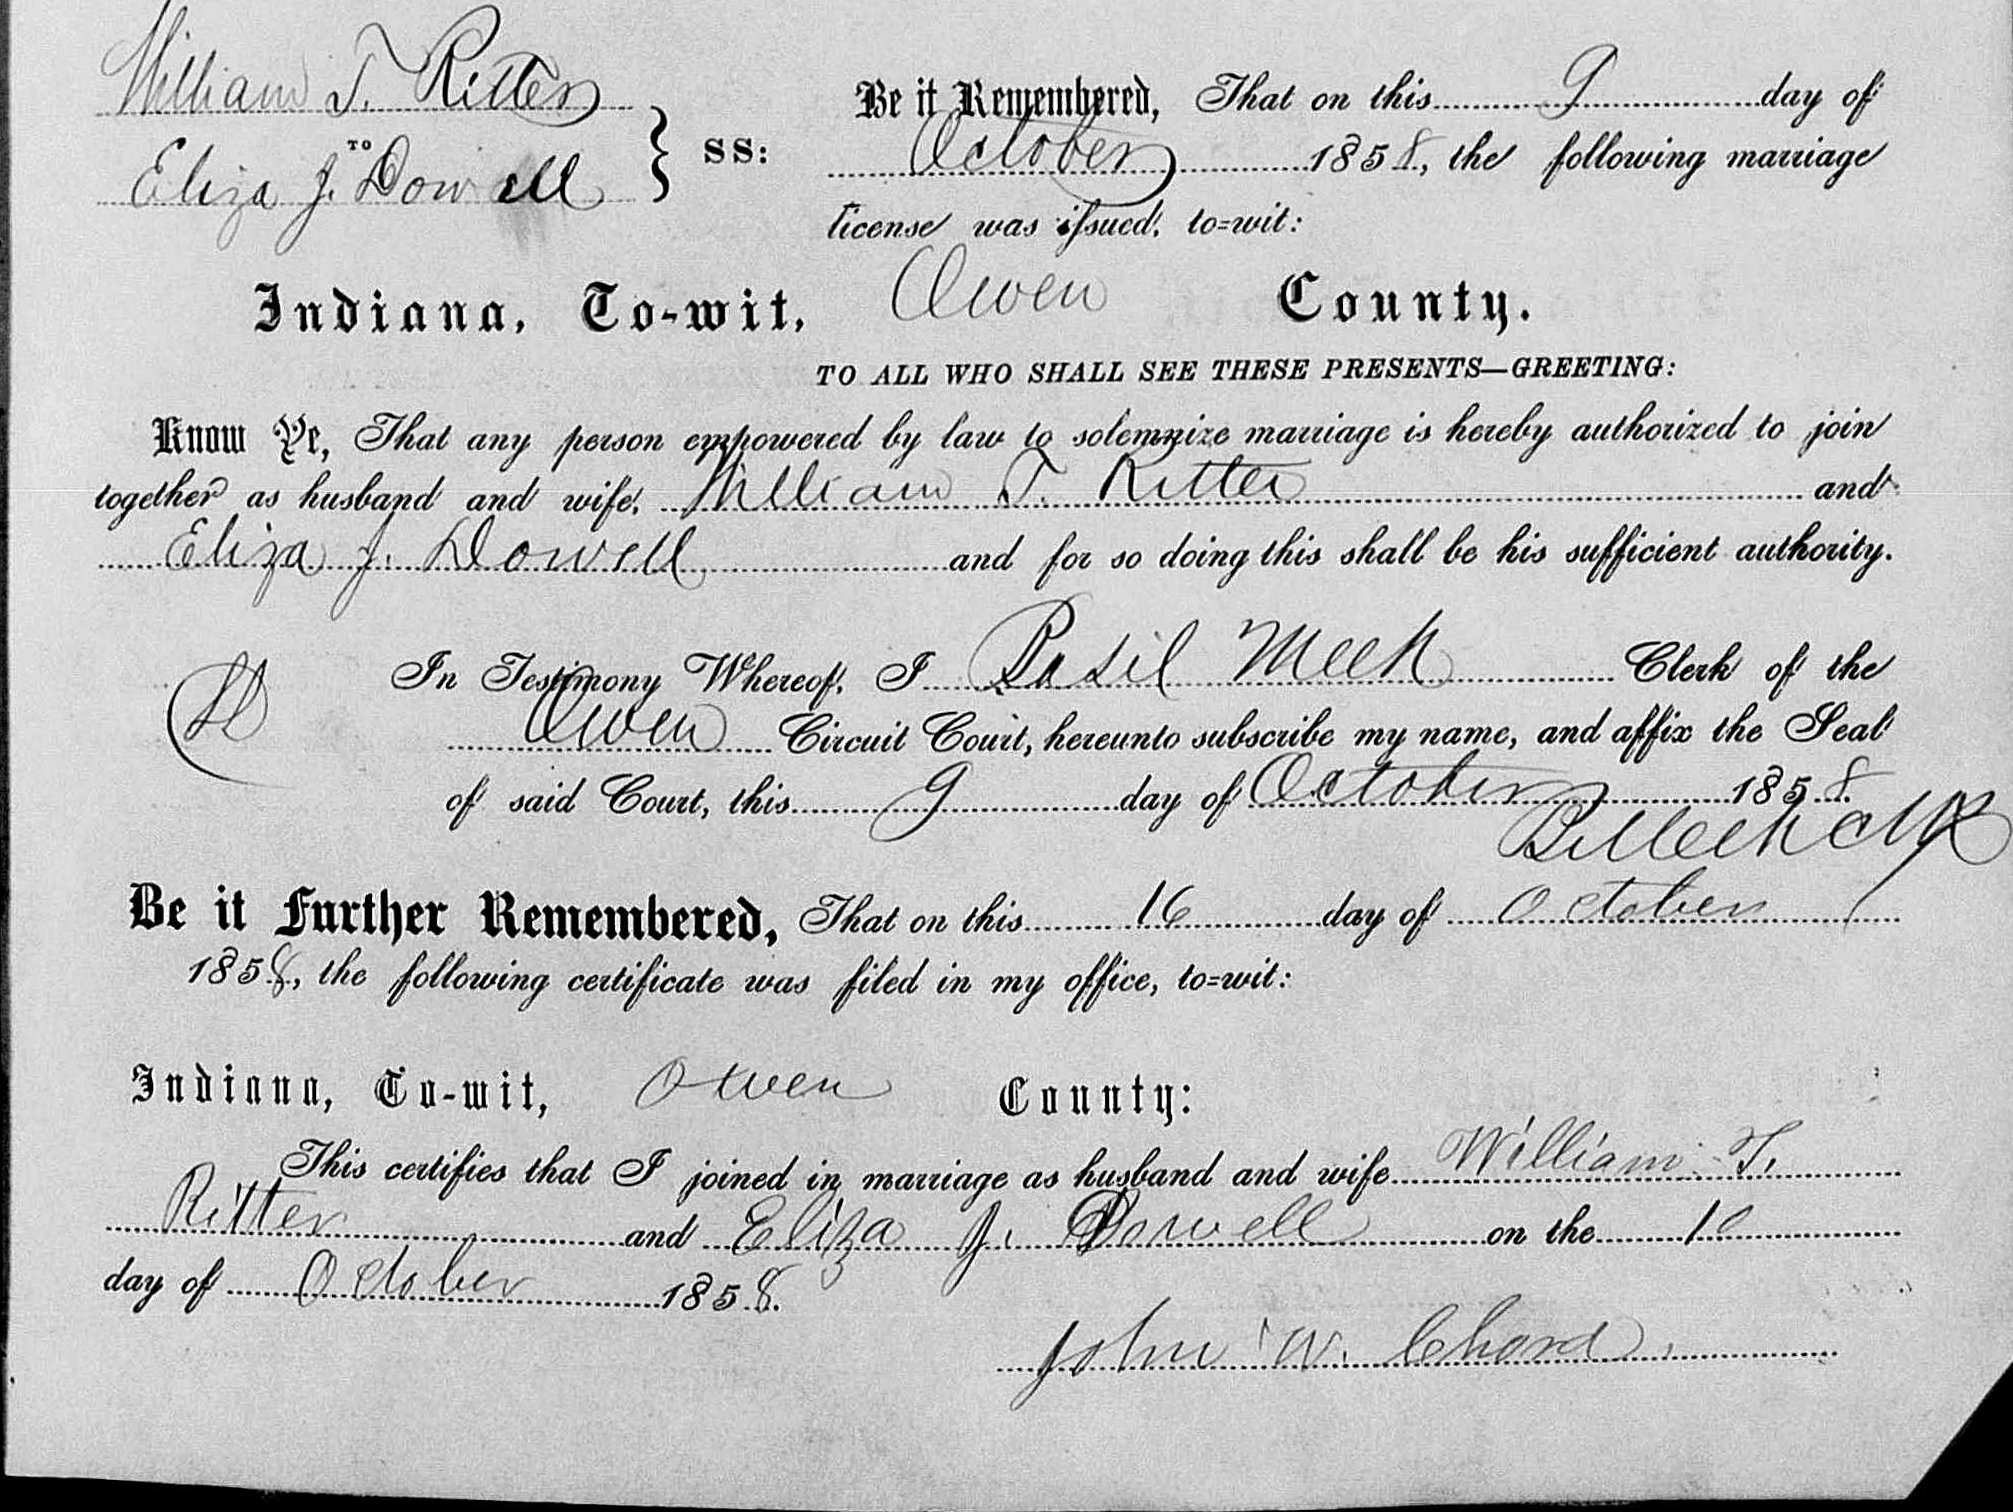 William T. Ritter
TO
Eliza J. Dowell
SS:
Be it Remembered, That on this 9 day of
October 1858, the following marriage
license was issued, to=wit:
Indiana, To-wit, Owen County.
TO ALL WHO SHALL SEE THESE PRESENTS—GREETING:
Know Ye, That any person empowered by law to solemnize marriage is hereby authorized to join
together as husband and wife, William T. Ritter and
Eliza J. Dowell and for so doing this shall be his sufficient authority.
In Testimony Whereof, I Basil Meek Clerk of the
Owen Circuit Court, hereunto subscribe my name, and affix the Seal
of said Court, this 9 day of October 1858.
B Meek Clk
Be it Further Remembered, That on this 16 day of October
1858, the following certificate was filed in my office, to=wit:
Indiana, To-wit, Owen County:
This certifies that I joined in marriage as husband and wife William T.
Ritter and Eliza J. Dowell on the 10
day of October 1858.
John W. Chord.